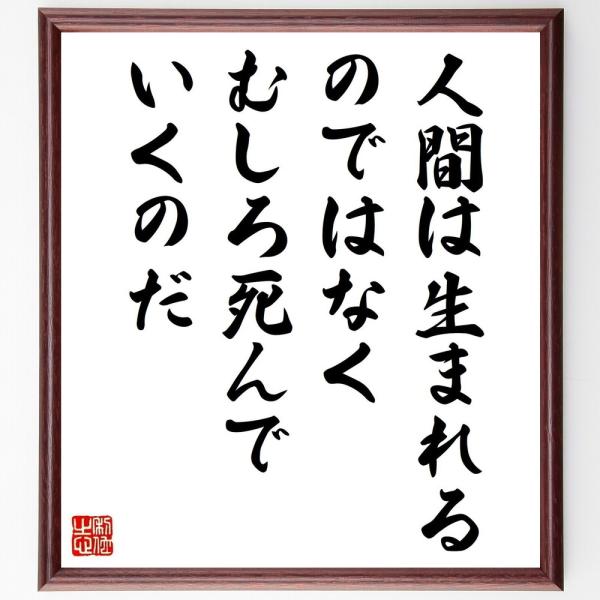 人間は生まれる
のではなく
むしろ死んで
いくのだ